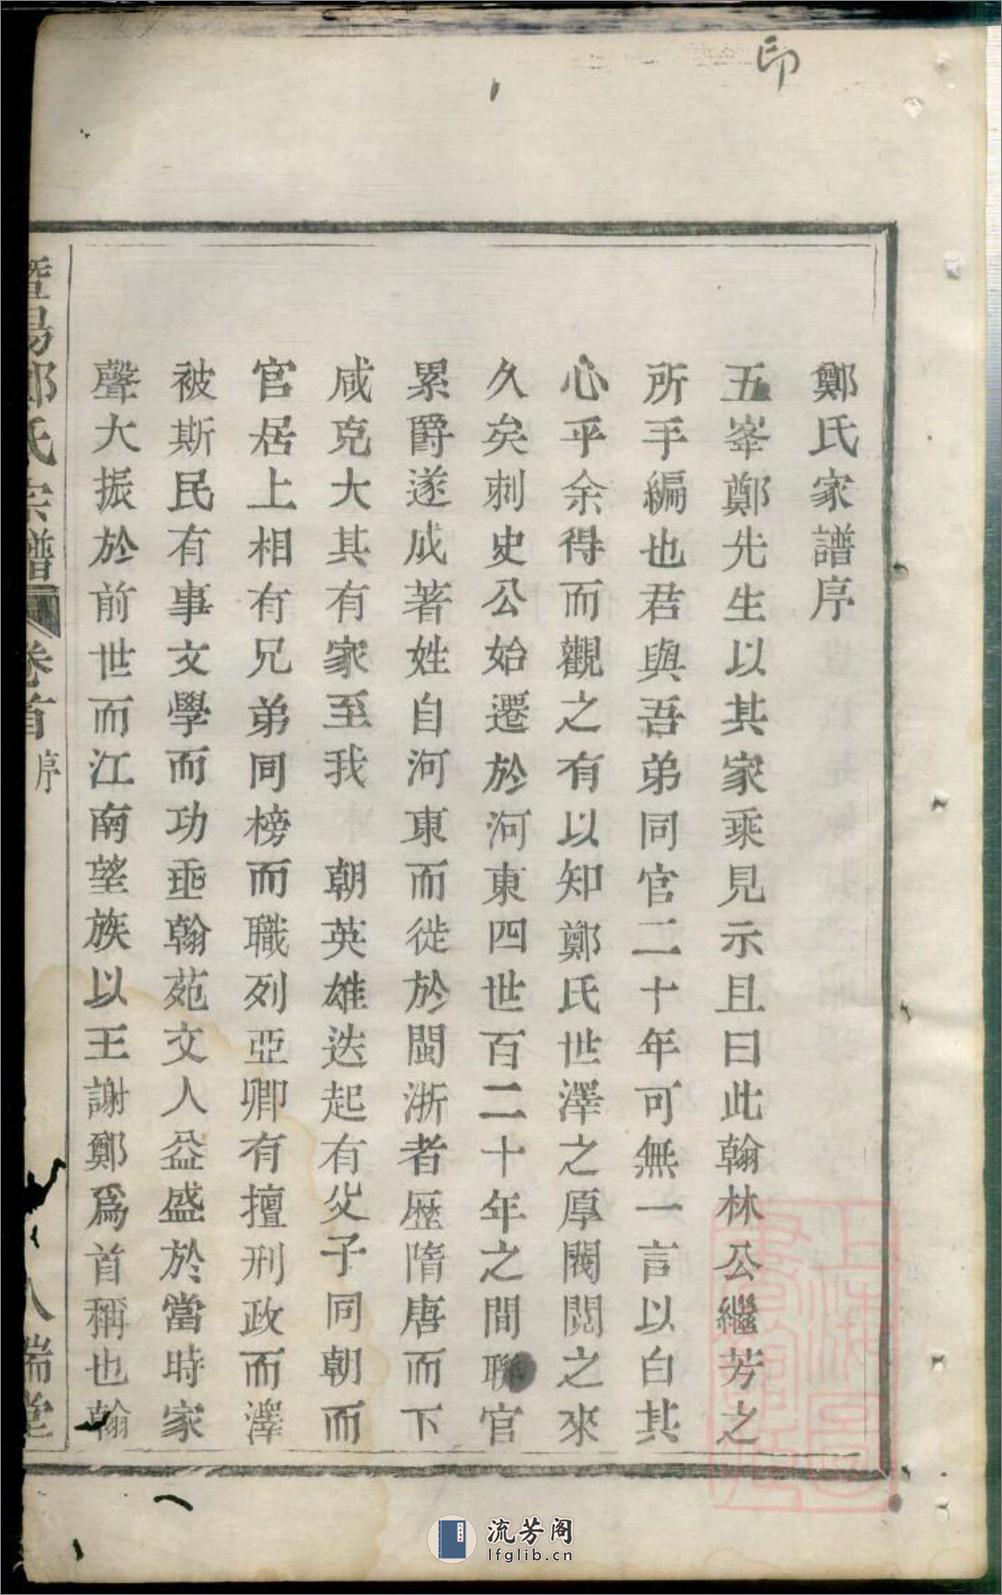 印
鄭氏家譜序
五峯鄭先生以其家乘見示且曰此翰林公繼芳之
所手編也君與吾弟同官二十年可無一言以白其
心乎余得而觀之有以知鄭氏世澤之厚閥閱之來
久矣刺史公始遷於河東四世百二十年之間聯官
累爵遂成著姓自河東而徙於閩浙者歷隋唐而下
咸克大其有家至我 朝英雄迭起有父子同朝而
官居上相有兄弟同榜而職列亞卿有擅刑政而澤
被斯民有事文學而功垂翰苑文人益盛於當時家
聲大振於前世而江南望族以王謝鄭爲首稱也翰
暨陽鄭氏宗譜 卷首 序 八 瑞堂
流芳阁
lfglib.cn